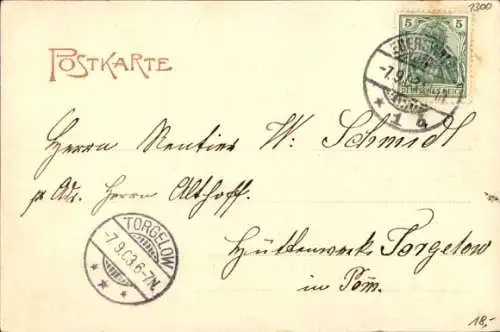 1300
POSTKARTE
5 5
DEUTSCHES REICH
-7.9.03.
* 1 b
Herrn Rentier W. Schmidt
p. Adr. Herrn Althoff.
TORGELOW
-7.9.03.6-7N.
* * *
Hüttenwerk Torgelow
in Pom.
18,-